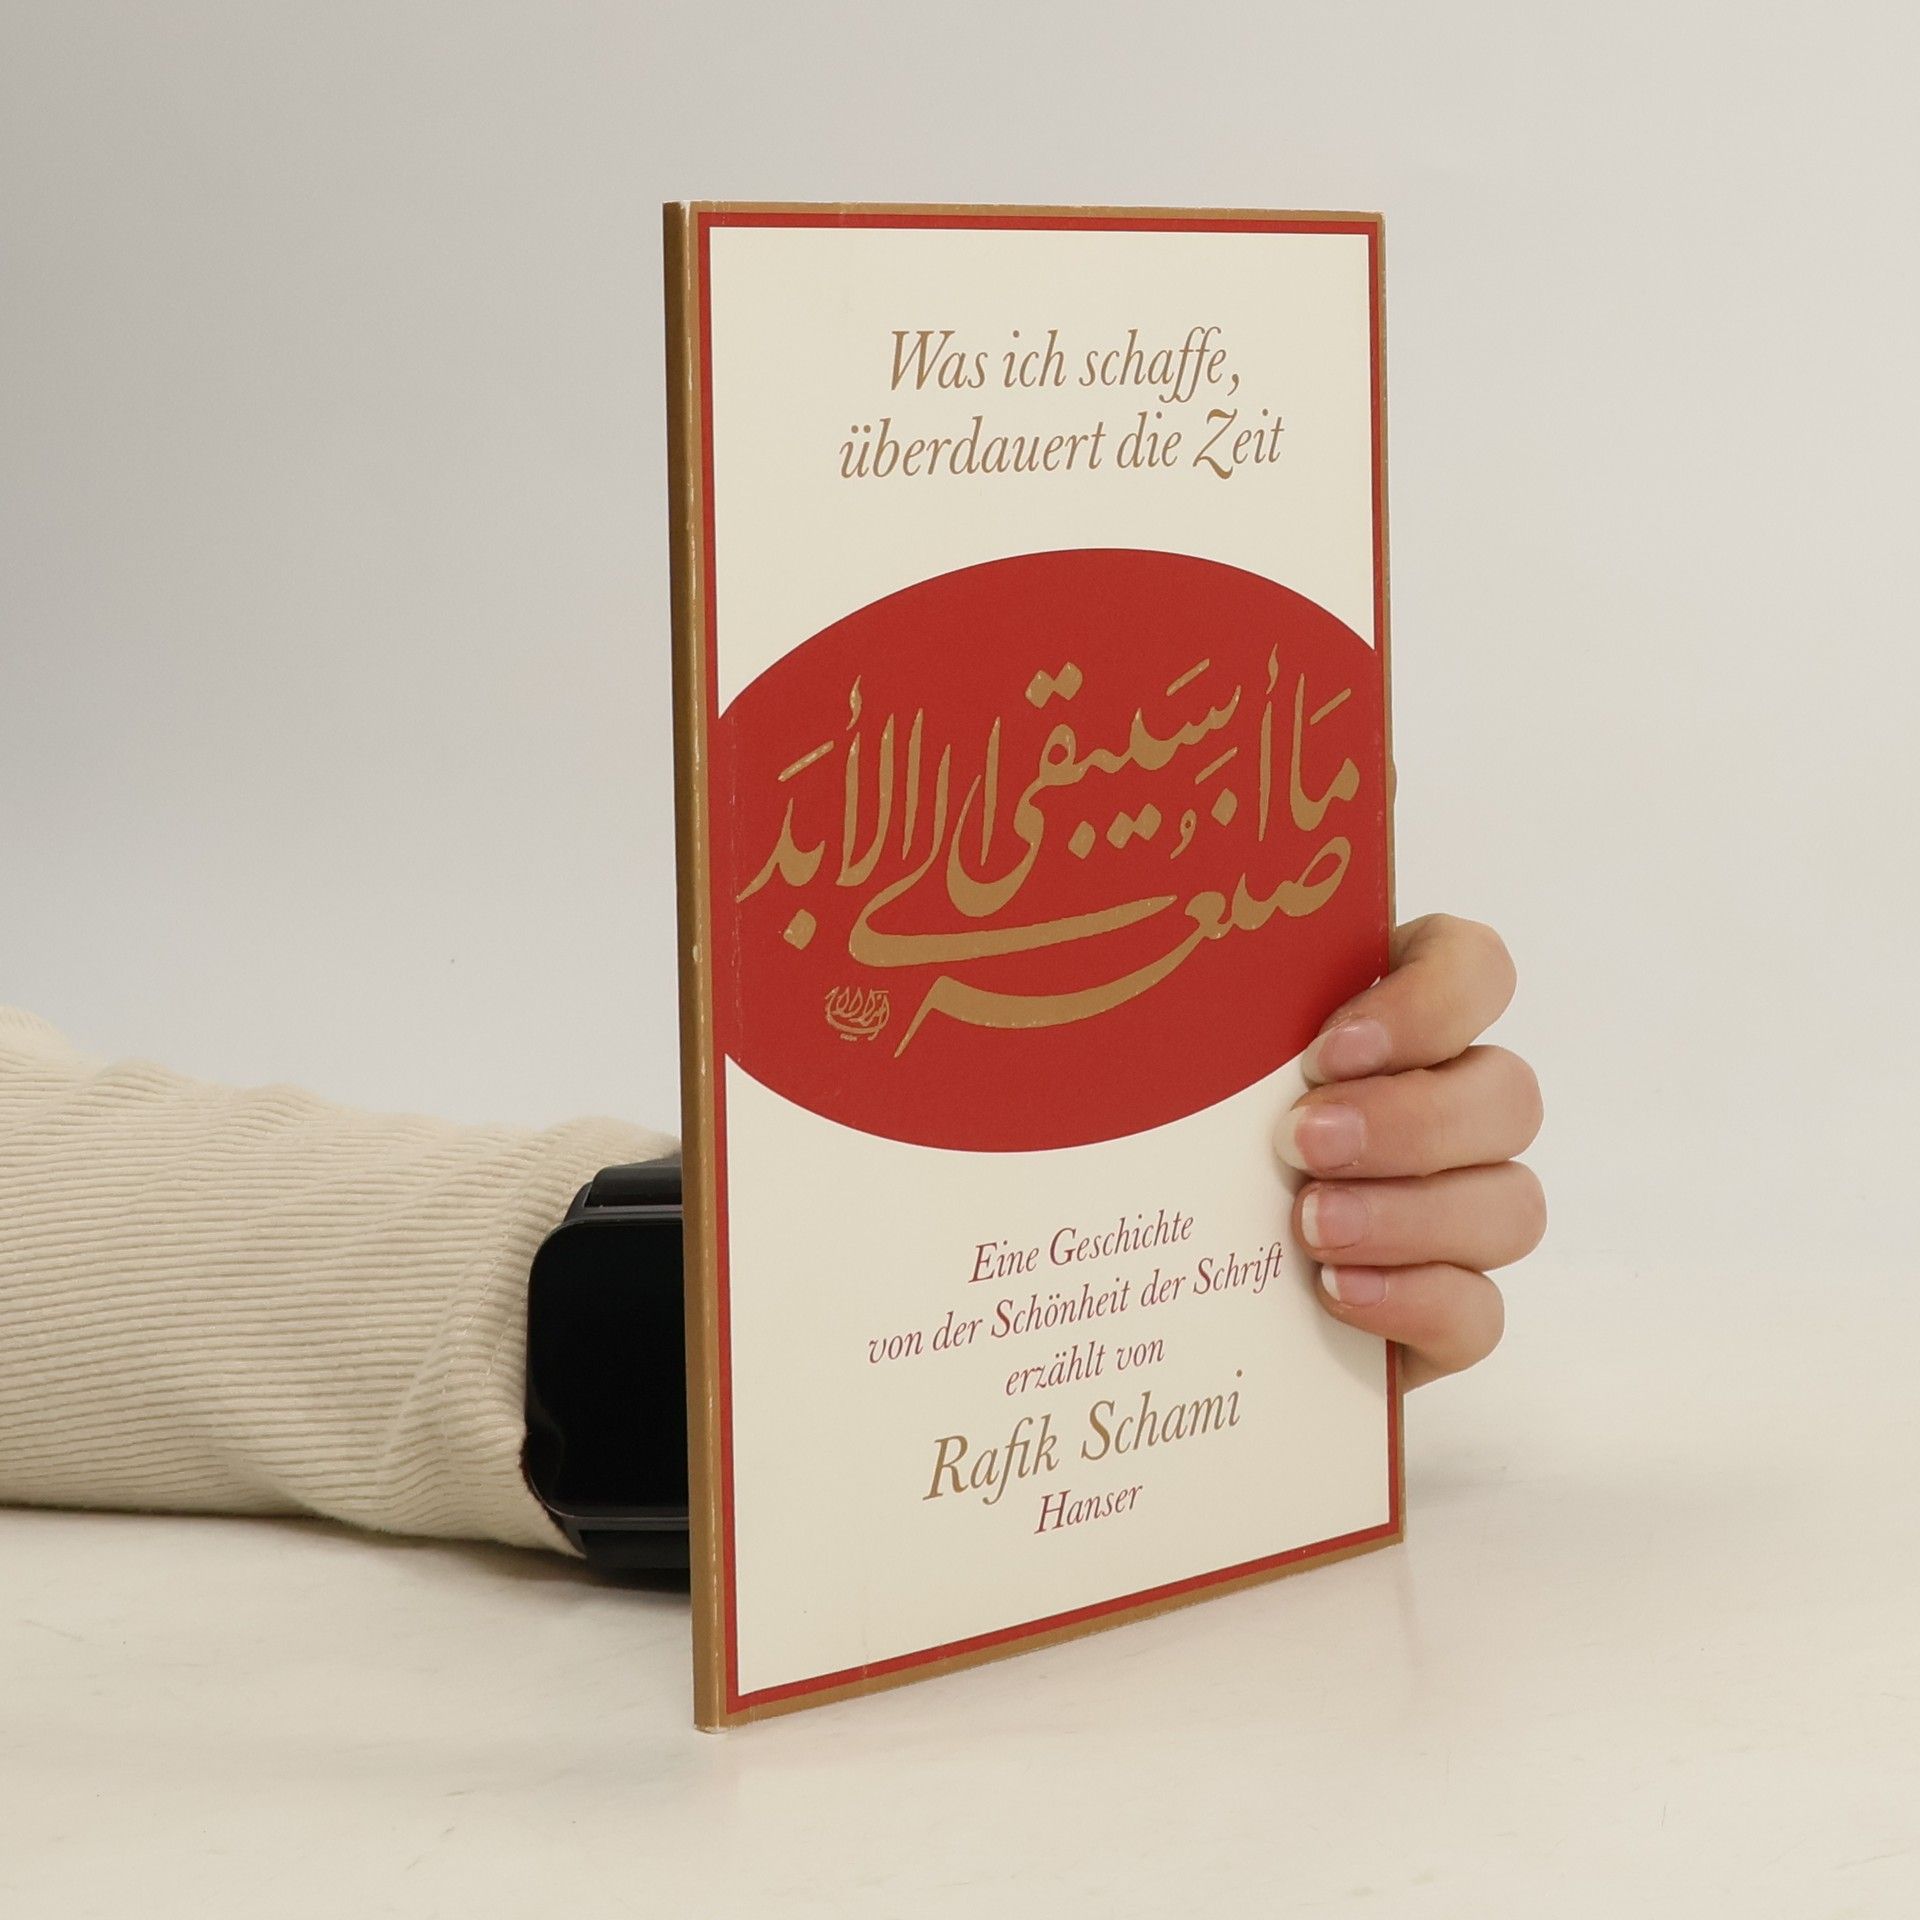 Was ich schaffe,
überdauert die Zeit
مَا أصنعُه سَيبقى الى الأبَد
Eine Geschichte
von der Schönheit der Schrift
erzählt von
Rafik Schami
Hanser